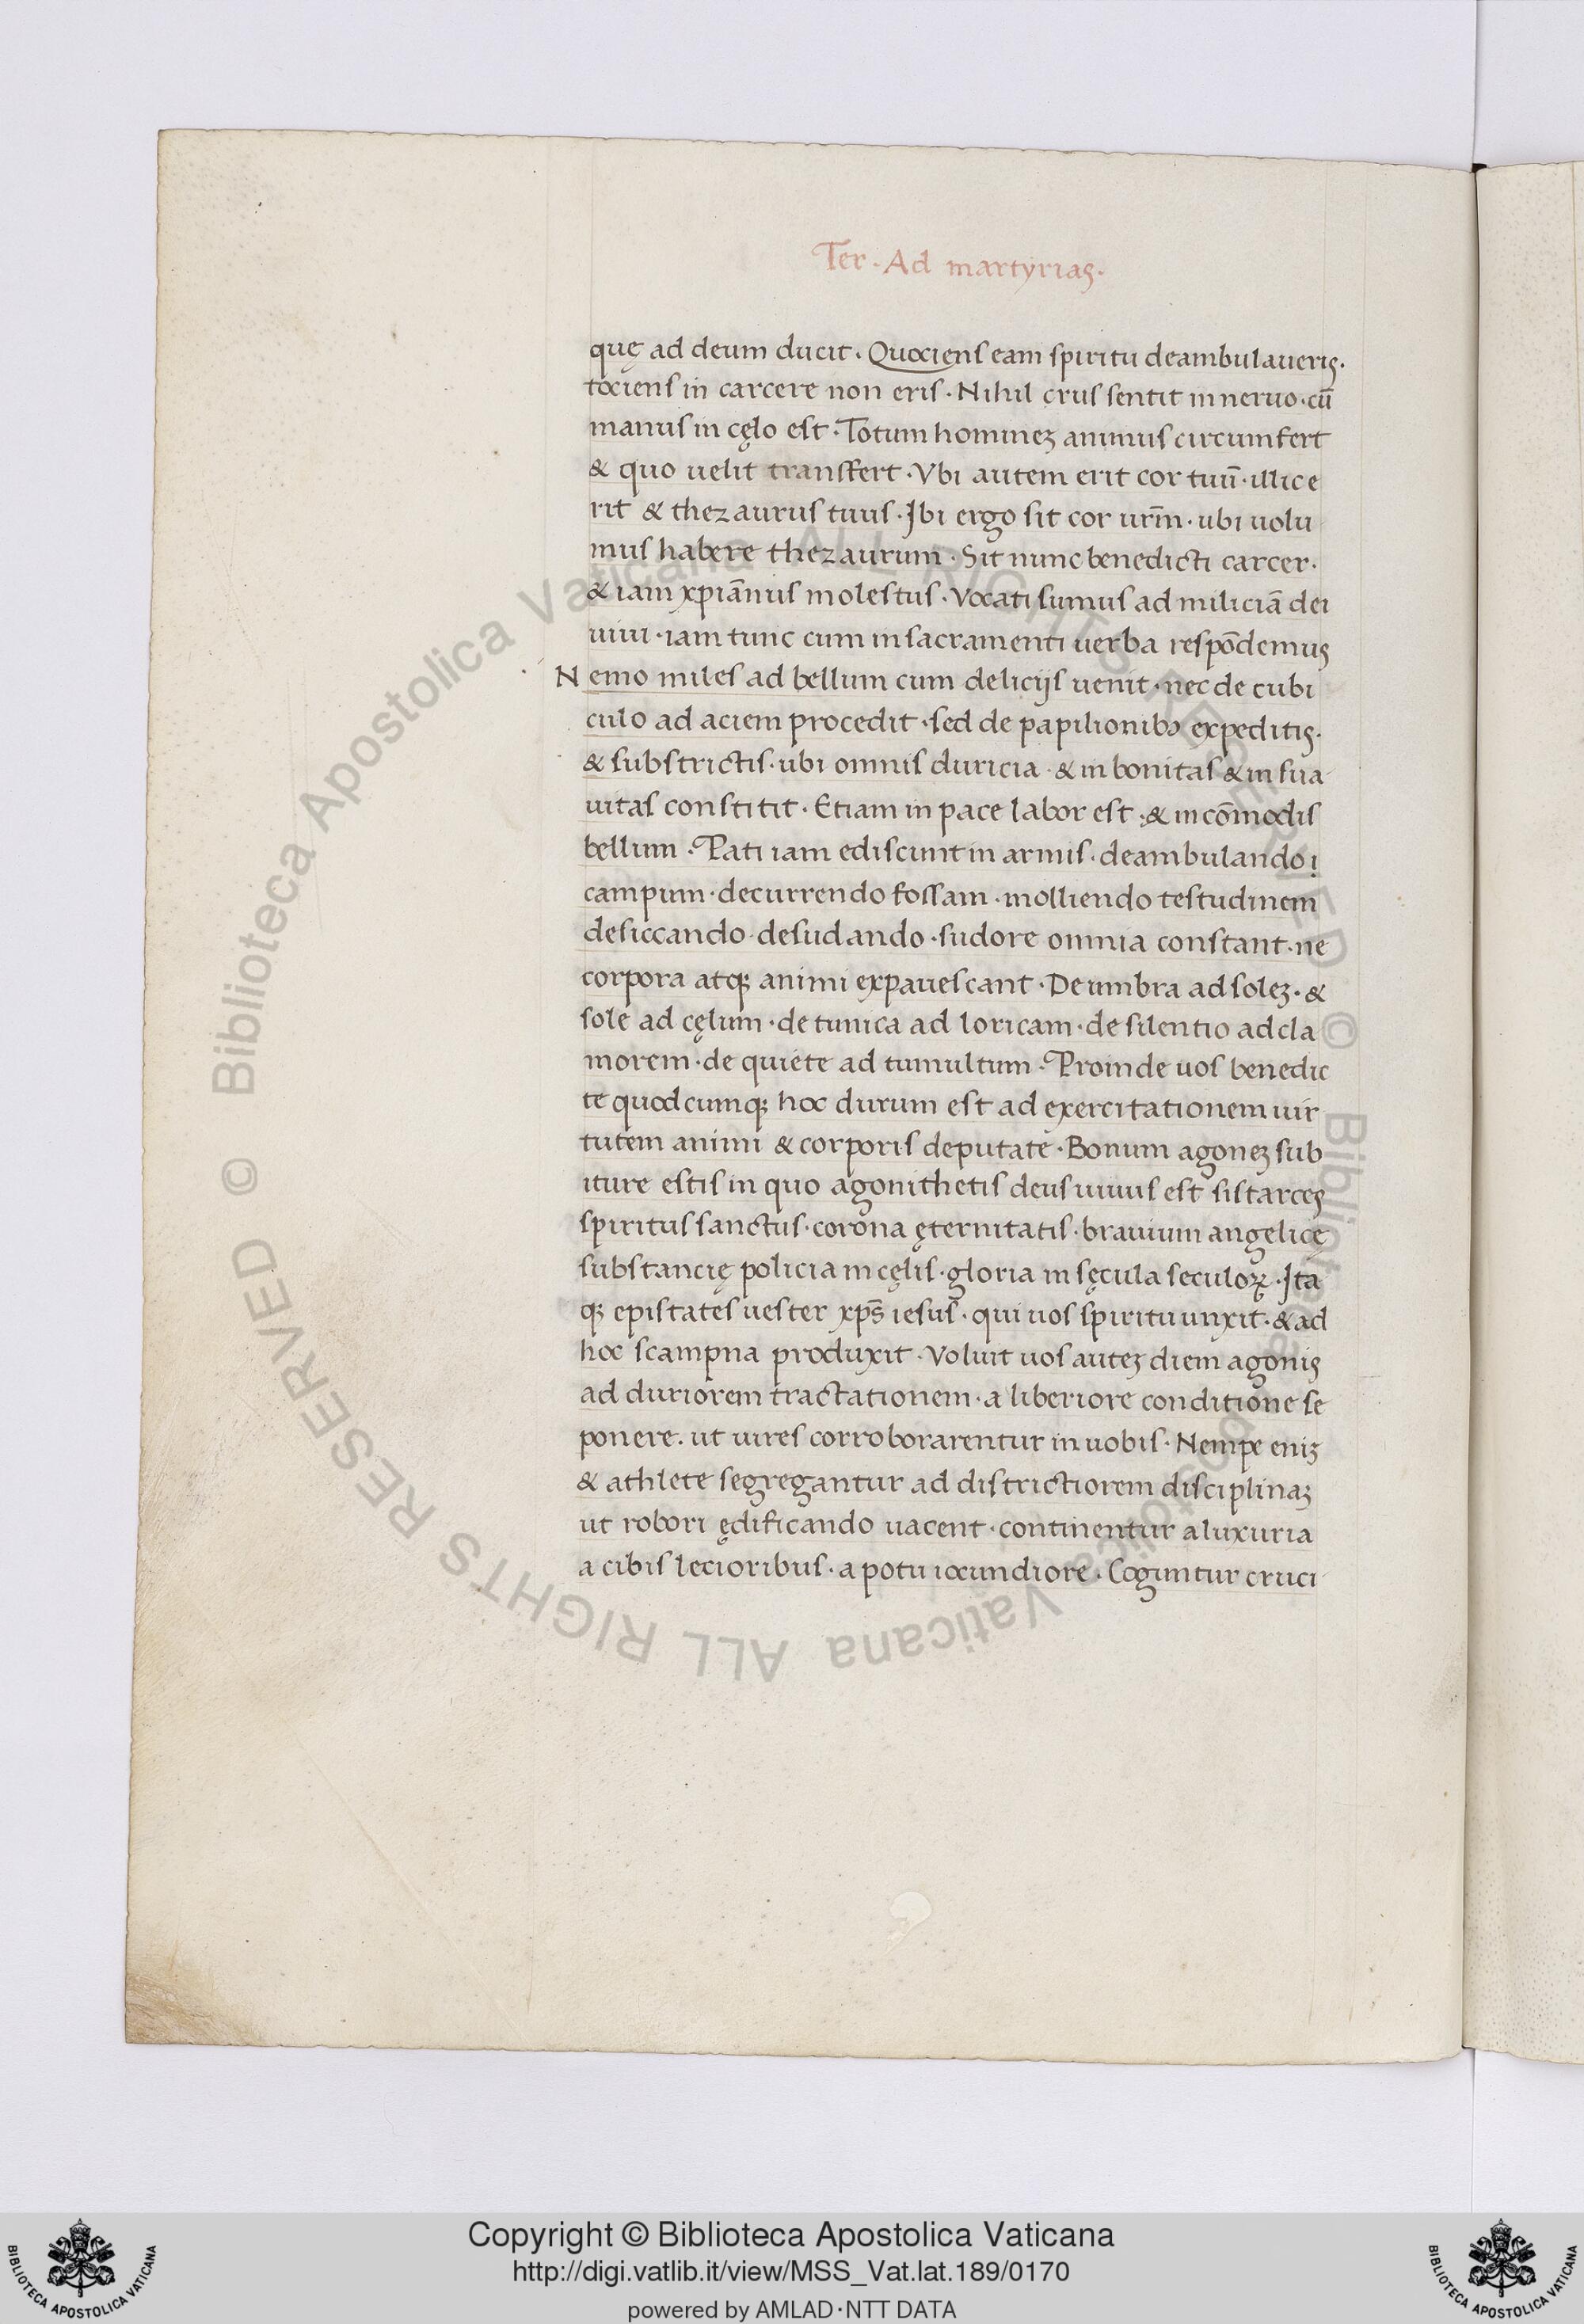 Ter · Ad martyrias ·
quę ad deum ducit · Quociens eam spiritu deambulaueris ·
tociens in carcere non eris · Nihil crus sentit in neruo · cū
manus in cęlo est · Totum hominez animus circumfert
& quo uelit transfert · Vbi autem erit cor tuū · illic e
rit & thezaurus tuus · Ibi ergo sit cor ur̄m · ubi uolu
mus habere thezaurum · Sit nunc benedicti carcer ·
& iam xpiānus molestus · Vocati sumus ad miliciā dei
uiui · iam tunc cum in sacramenti uerba respōdemus
Nemo miles ad bellum cum delicijs uenit · nec de cubi
culo ad aciem procedit · sed de papilionibꝰ expeditis ·
& substrictis · ubi omnis duricia · & in bonitas & in sua
uitas constitit · Etiam in pace labor est · & in cōmodis
bellum · Pati iam ediscunt in armis · deambulando ·
campum · decurrendo fossam · molliendo testudinem
desiccando · desudando · sudore omnia constant · ne
corpora atqꝫ animi expauescant · De umbra ad solez · &
sole ad cęlum · de tunica ad loricam · de silentio ad cla
morem · de quiete ad tumultum · Proinde uos benedic
te quodcumqꝫ hoc durum est ad exercitationem uir
tutem animi & corporis deputate · Bonum agonez sub
iture estis in quo agonithetis deus uiuus est sistarces
spiritus sanctus · corona ęternitatis · brauium angelicę
substancię policia in cęlis · gloria in sęcula seculoꝝ · Ita
qꝫ epistates uester xp̄s iesus · qui uos spiritu unxit · & ad
hoc scampna produxit · Voluit uos autez diem agonis
ad duriorem tractationem · a liberiore conditione se
ponere · ut uires corroborarentur in uobis · Nempe eniz
& athlete segregantur ad districtiorem disciplinaz
ut robori ędificando uacent · continentur a luxuria
a cibis lecioribus · a potu iocundiore · Coguntur cruci
© Biblioteca Apostolica Vaticana ALL RIGHTS RESERVED © Biblioteca Apostolica Vaticana ALL RIGHTS RESERVED
Copyright © Biblioteca Apostolica Vaticana
http://digi.vatlib.it/view/MSS_Vat.lat.189/0170
powered by AMLAD·NTT DATA
BIBLIOTECA APOSTOLICA VATICANA
BIBLIOTECA APOSTOLICA VATICANA